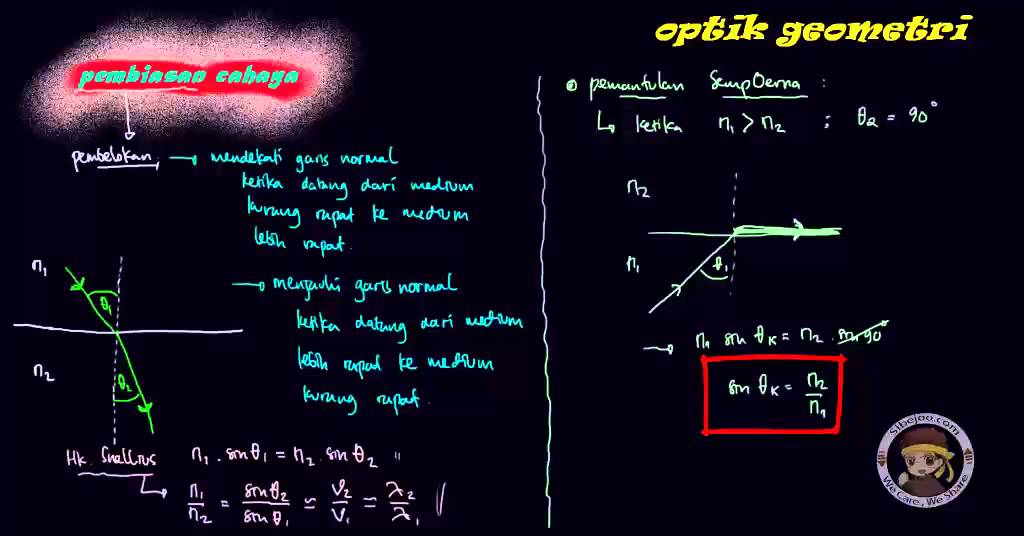 optik geometri
pembiasan cahaya
pembelokan → mendekati garis normal
ketika datang dari medium
kurang rapat ke medium
lebih rapat.
→ menjauhi garis normal
ketika datang dari medium
lebih rapat ke medium
kurang rapat.
n₁
θ₁
n₂
θ₂
Hk. Snellius n₁ . sin θ₁ = n₂ . sin θ₂ "
n₁/n₂ = sin θ₂/sin θ₁ = v₂/v₁ = λ₂/λ₁ //
• pemantulan SempOerna :
↳ ketika n₁ > n₂ ; θ₂ = 90°
n₂
n₁
θ₁
→ n₁ sin θ_K = n₂ . sin 90°
sin θ_K = n₂/n₁
Sibejoo.com
We Care, We Share